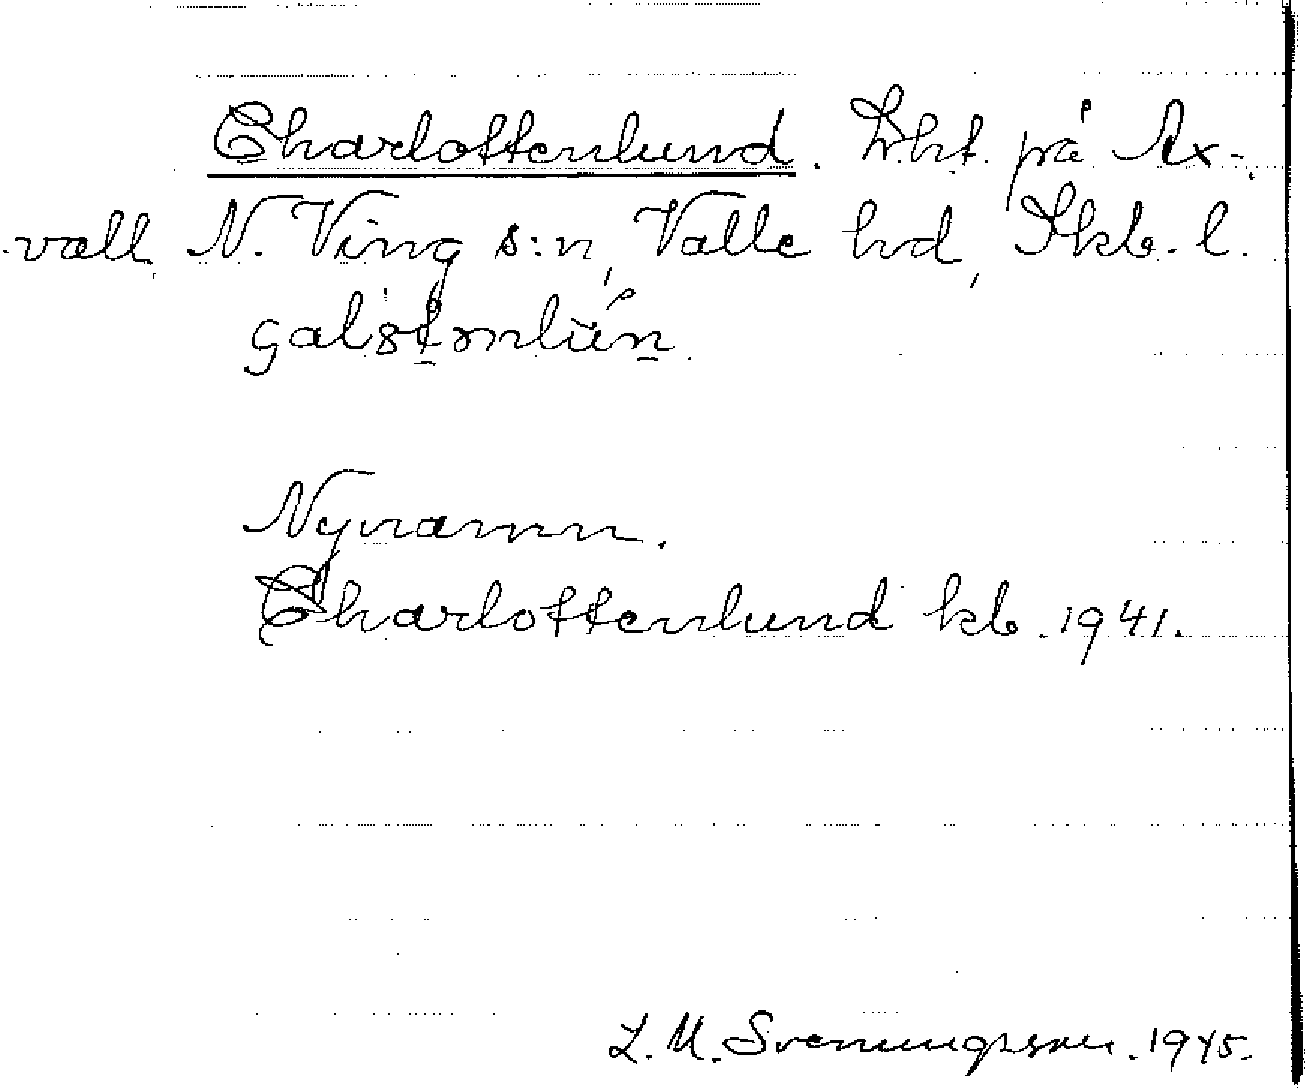 Charlottenlund. Lht. på Ax-
vall, N. Ving s:n, Valle hd, Skb. l.
Nynamn.
Charlottenlund kb. 1941.
L. M. Svenungsson. 1945.